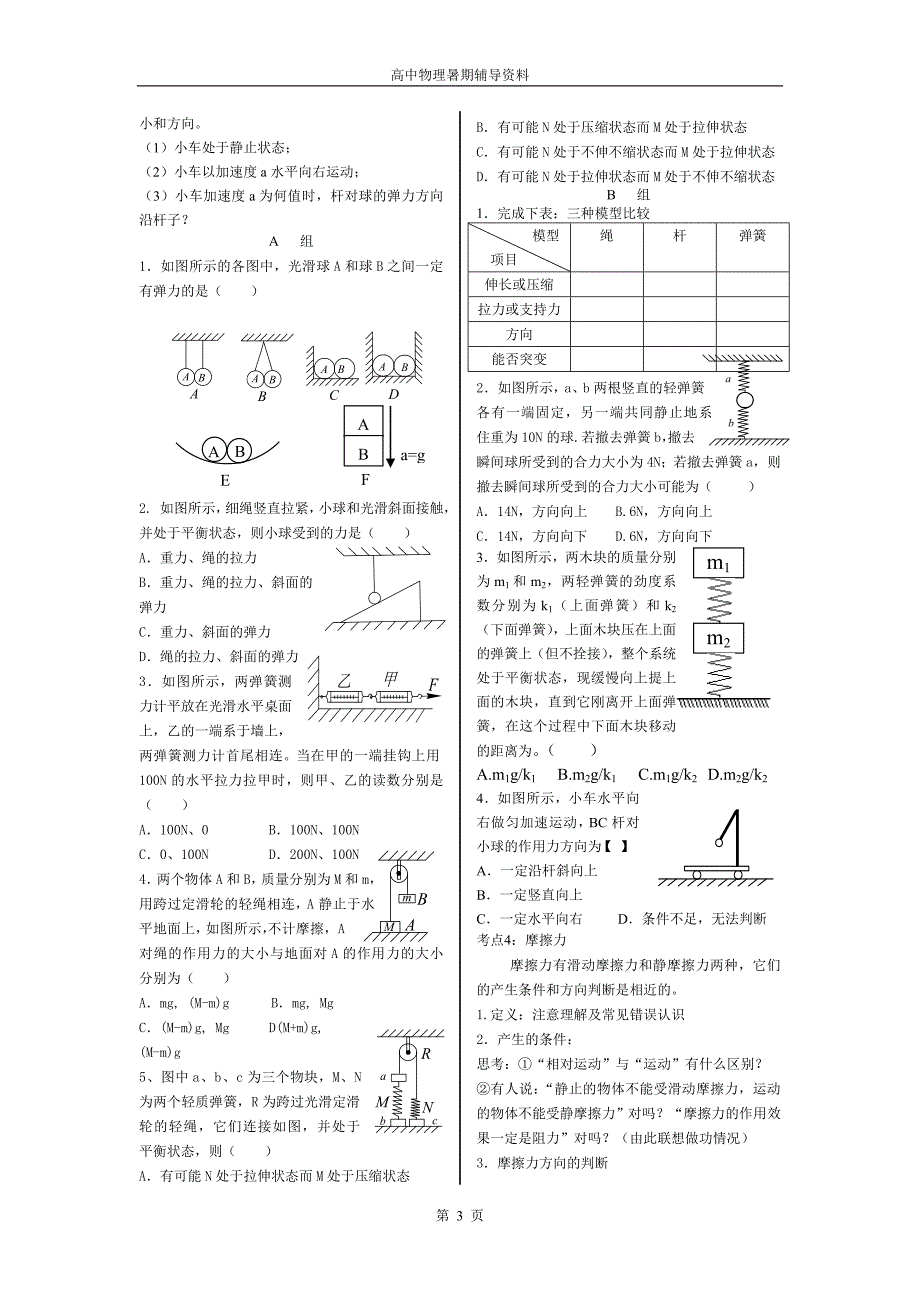 高中物理暑期辅导资料
小和方向。
（1）小车处于静止状态；
（2）小车以加速度 a 水平向右运动；
（3）小车加速度 a 为何值时，杆对球的弹力方向
沿杆子？
A 组
1．如图所示的各图中，光滑球 A 和球 B 之间一定
有弹力的是（ ）
A B A B A B A B
A B C D
A B
E
A
B
a=g
F
2. 如图所示,细绳竖直拉紧,小球和光滑斜面接触,
并处于平衡状态，则小球受到的力是（ ）
A．重力、绳的拉力
B．重力、绳的拉力、斜面的
弹力
C．重力、斜面的弹力
D．绳的拉力、斜面的弹力
3．如图所示，两弹簧测
力计平放在光滑水平桌面
上，乙的一端系于墙上，
乙 甲 F
两弹簧测力计首尾相连。当在甲的一端挂钩上用
100N 的水平拉力拉甲时，则甲、乙的读数分别是
（ ）
A．100N、0 B．100N、100N
C．0、100N D．200N、100N
4.两个物体 A 和 B,质量分别为 M 和 m,
用跨过定滑轮的轻绳相连，A 静止于水
平地面上，如图所示,不计摩擦，A
m B
M A
对绳的作用力的大小与地面对 A 的作用力的大小
分别为（ ）
A．mg, (M-m)g B．mg, Mg
C．(M-m)g, Mg D(M+m)g,
(M-m)g
5、图中 a、b、c 为三个物块，M、N
为两个轻质弹簧，R 为跨过光滑定滑
轮的轻绳，它们连接如图，并处于
平衡状态，则（ ）
R
a
M N
b c
A．有可能 N 处于拉伸状态而 M 处于压缩状态
B．有可能 N 处于压缩状态而 M 处于拉伸状态
C．有可能 N 处于不伸不缩状态而 M 处于拉伸状态
D．有可能 N 处于拉伸状态而 M 处于不伸不缩状态
B 组
1．完成下表：三种模型比较
模型 绳 杆 弹簧
项目
伸长或压缩
拉力或支持力
方向
能否突变
2．如图所示，a、b 两根竖直的轻弹簧
各有一端固定，另一端共同静止地系
住重为 10N 的球.若撤去弹簧 b,撤去
a
b
瞬间球所受到的合力大小为 4N；若撤去弹簧 a，则
撤去瞬间球所受到的合力大小可能为（ ）
A．14N，方向向上 B.6N，方向向上
C．14N，方向向下 D.6N，方向向下
3．如图所示，两木块的质量分别
为 m1 和 m2，两轻弹簧的劲度系
数分别为 k1（上面弹簧）和 k2
（下面弹簧），上面木块压在上面
的弹簧上（但不拴接），整个系统
处于平衡状态，现缓慢向上提上
面的木块，直到它刚离开上面弹
簧，在这个过程中下面木块移动
的距离为。（ ）
m1
m2
A.m1g/k1 B.m2g/k1 C.m1g/k2 D.m2g/k2
4．如图所示，小车水平向
右做匀加速运动，BC 杆对
小球的作用力方向为【 】
A．一定沿杆斜向上
B．一定竖直向上
C．一定水平向右 D．条件不足，无法判断
考点4：摩擦力
摩擦力有滑动摩擦力和静摩擦力两种，它们
的产生条件和方向判断是相近的。
1.定义：注意理解及常见错误认识
2．产生的条件：
思考：①“相对运动”与“运动”有什么区别？
②有人说：“静止的物体不能受滑动摩擦力，运动
的物体不能受静摩擦力”对吗？“摩擦力的作用效
果一定是阻力”对吗？（由此联想做功情况）
3．摩擦力方向的判断
第 3 页